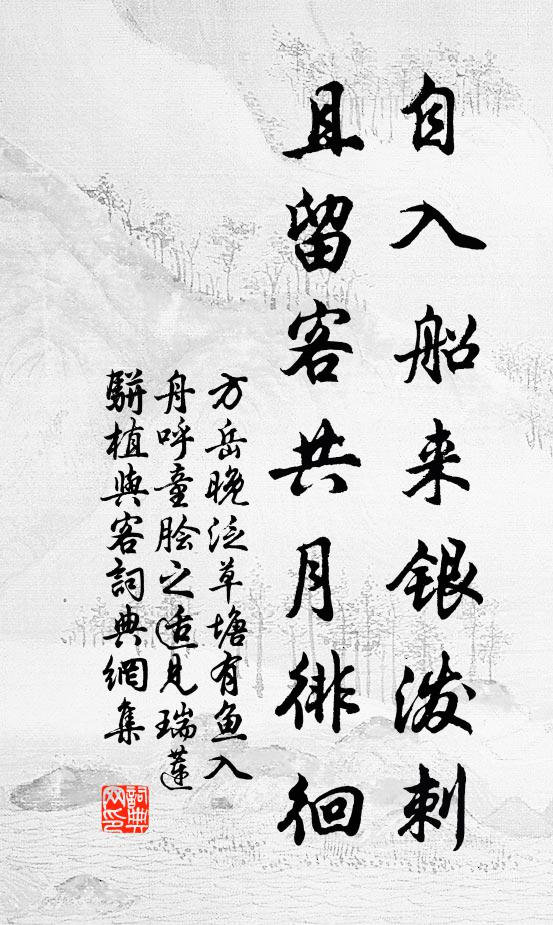 自入船来银泼剌
且留客共月徘徊
方岳晚泛草塘有鱼入
舟呼童脍之适见瑞莲
駢植與客詞典網集
詞典网印